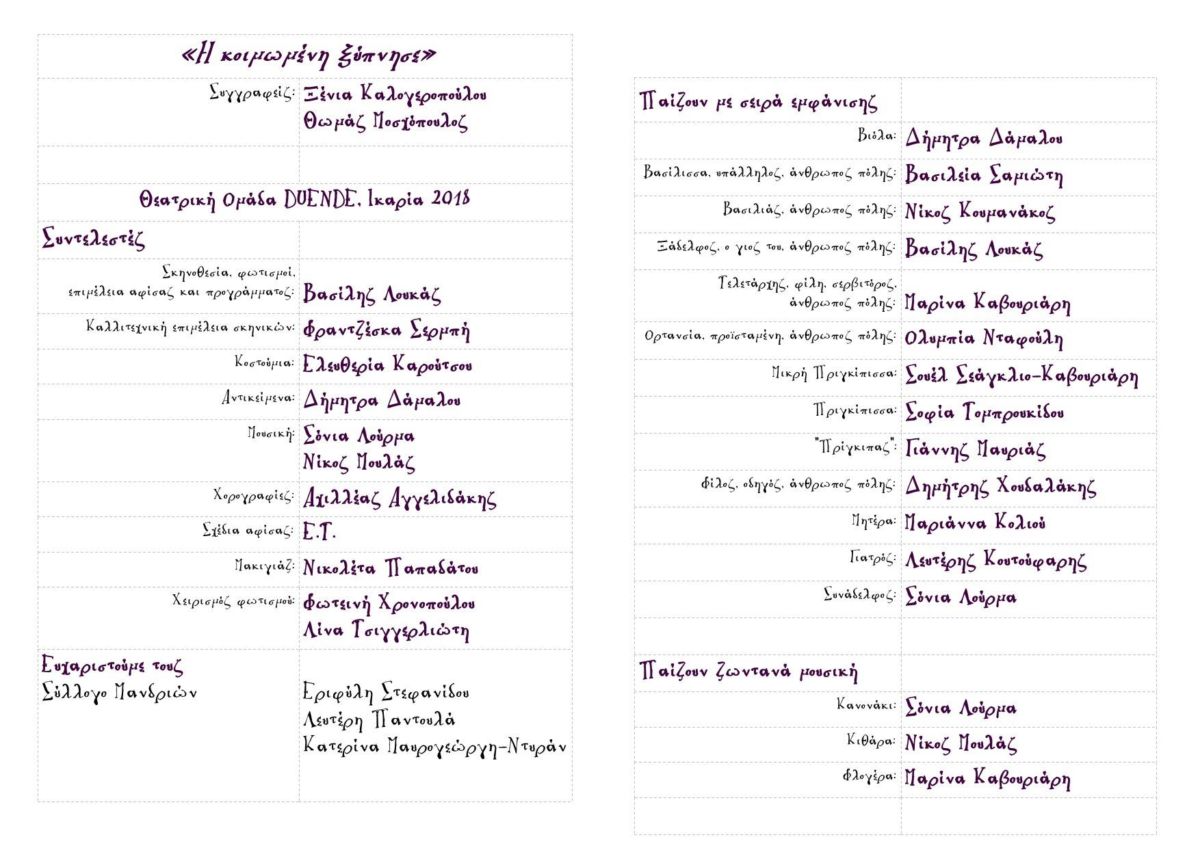 «Η κοιμωμένη ξύπνησε»
Συγγραφείς: Ξένια Καλογεροπούλου
Θωμάς Μοσχόπουλος
Θεατρική Ομάδα DUENDE, Ικαρία 2018
Συντελεστές
Σκηνοθεσία, φωτισμοί,
επιμέλεια αφίσας και προγράμματος: Βασίλης Λουκάς
Καλλιτεχνική επιμέλεια σκηνικών: Φραντζέσκα Σερμπή
Κοστούμια: Ελευθερία Καρούτσου
Αντικείμενα: Δήμητρα Δάμαλου
Μουσική: Σόνια Λούρμα
Νίκος Μουλάς
Χορογραφίες: Αχιλλέας Αγγελιδάκης
Σχέδια αφίσας: Ε.Τ.
Μακιγιάζ: Νικολέτα Παπαδάτου
Χειρισμός φωτισμού: Φωτεινή Χρονοπούλου
Λίνα Τσιγγερλιώτη
Ευχαριστούμε τους
Σύλλογο Μανδριών Εριφύλη Στεφανίδου
Λευτέρη Παντουλά
Κατερίνα Μαυρογεώργη-Ντυράν
Παίζουν με σειρά εμφάνισης
Βιόλα: Δήμητρα Δάμαλου
Βασίλισσα, υπάλληλος, άνθρωπος πόλης: Βασιλεία Σαμιώτη
Βασιλιάς, άνθρωπος πόλης: Νίκος Κουμανάκος
Ξάδελφος, ο γιος του, άνθρωπος πόλης: Βασίλης Λουκάς
Τελετάρχης, φίλη, σερβιτόρος,
άνθρωπος πόλης: Μαρίνα Καβουριάρη
Ορτανσία, προϊσταμένη, άνθρωπος πόλης: Ολυμπία Νταφούλη
Μικρή Πριγκίπισσα: Σουέλ Σεάγκλιο-Καβουριάρη
Πριγκίπισσα: Σοφία Τομπρουκίδου
"Πρίγκιπας": Γιάννης Μαυριάς
Φίλος, οδηγός, άνθρωπος πόλης: Δημήτρης Χουδαλάκης
Μητέρα: Μαριάννα Κολιού
Γιατρός: Λευτέρης Κουτούφαρης
Συνάδελφος: Σόνια Λούρμα
Παίζουν ζωντανά μουσική
Κανονάκι: Σόνια Λούρμα
Κιθάρα: Νίκος Μουλάς
Φλογέρα: Μαρίνα Καβουριάρη